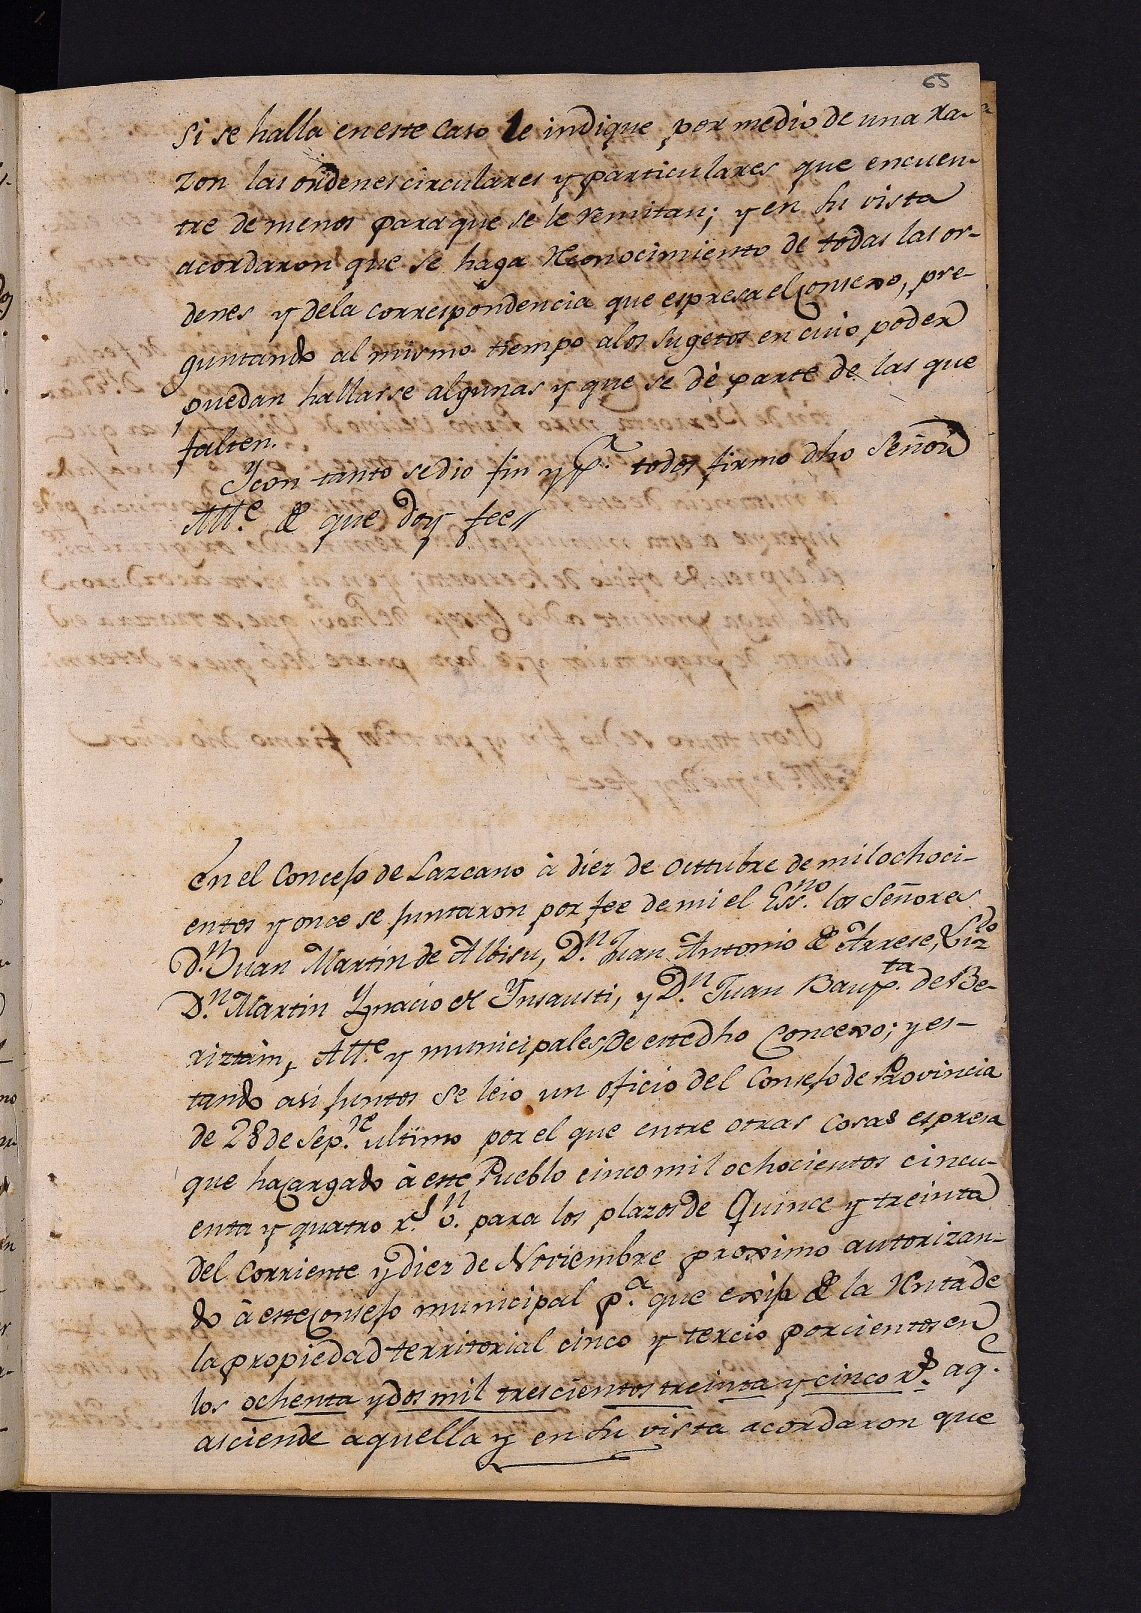 65
si se halla en este caso le indique por medio de una ra-
zon las ordenes circulares y particulares que encuen-
tre de menos para que se le remitan; y en su vista
acordaron que se haga reconocimiento de todas las or-
denes y dela correspondencia que espresa el Consexo, pre-
guntando al mismo tiempo alos sugetos en cuio poder
puedan hallarse algunas y que se dé parte de las que
falten.
Y con tanto se dio fin y p.r todos firmo dho Señor
Alle. de que doy fee//
En el Concejo de Lazcano à diez de Octtubre de mil ochoci-
entos y once se juntaron por fee de mi el Ess.no los Señores
D.n Juan Martin de Albisu, D.n Juan Antonio de Arrese,
D.n Martin Ygnacio de Ynsausti, y D.n Juan Baup.ta de Be-
riztain, Alle. y municipales de este dho Concexo; y es-
tando asi juntos se leio un oficio del Consejo de Provincia
de 28 de Sep.re ultimo por el que entre otras cosas espresa
que ha cargado à este Pueblo cinco mil ochocientos cincu-
enta y quatro r.s v.n para los plazos de Quince y treinta
del corriente y diez de Noviembre proximo autorizan-
do à este Consejo municipal p.a que exija de la renta de
la propiedad territorial cinco y tercio por cientos en
los ochenta y dos mil trescientos treinta y cinco r.s aq.e
asciende aquella y en su vista acordaron que